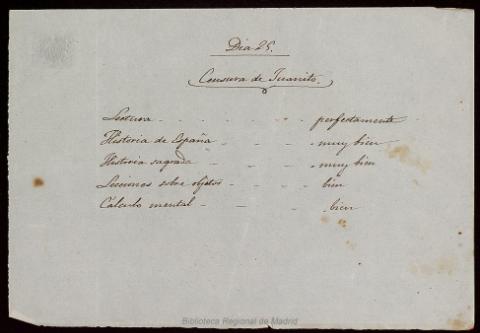 Dia 25.
Censura de Juanito.
Lectura - - - - - perfectamente
Historia de España - - - muy bien
Historia sagrada - - - muy bien
Lecciones sobre objetos - - - bien
Cálculo mental - - - - bien
Biblioteca Regional de Madrid